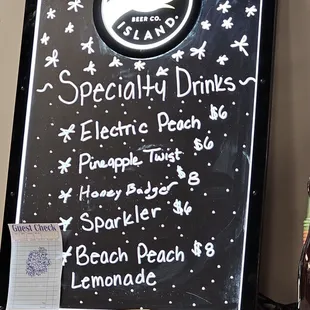 BEER CO.
ISLAND.
~Specialty Drinks~
* Electric Peach $6
* Pineapple Twist $6
* Honey Badger $8
* Sparkler $6
* Beach Peach $8
Lemonade
Guest Check